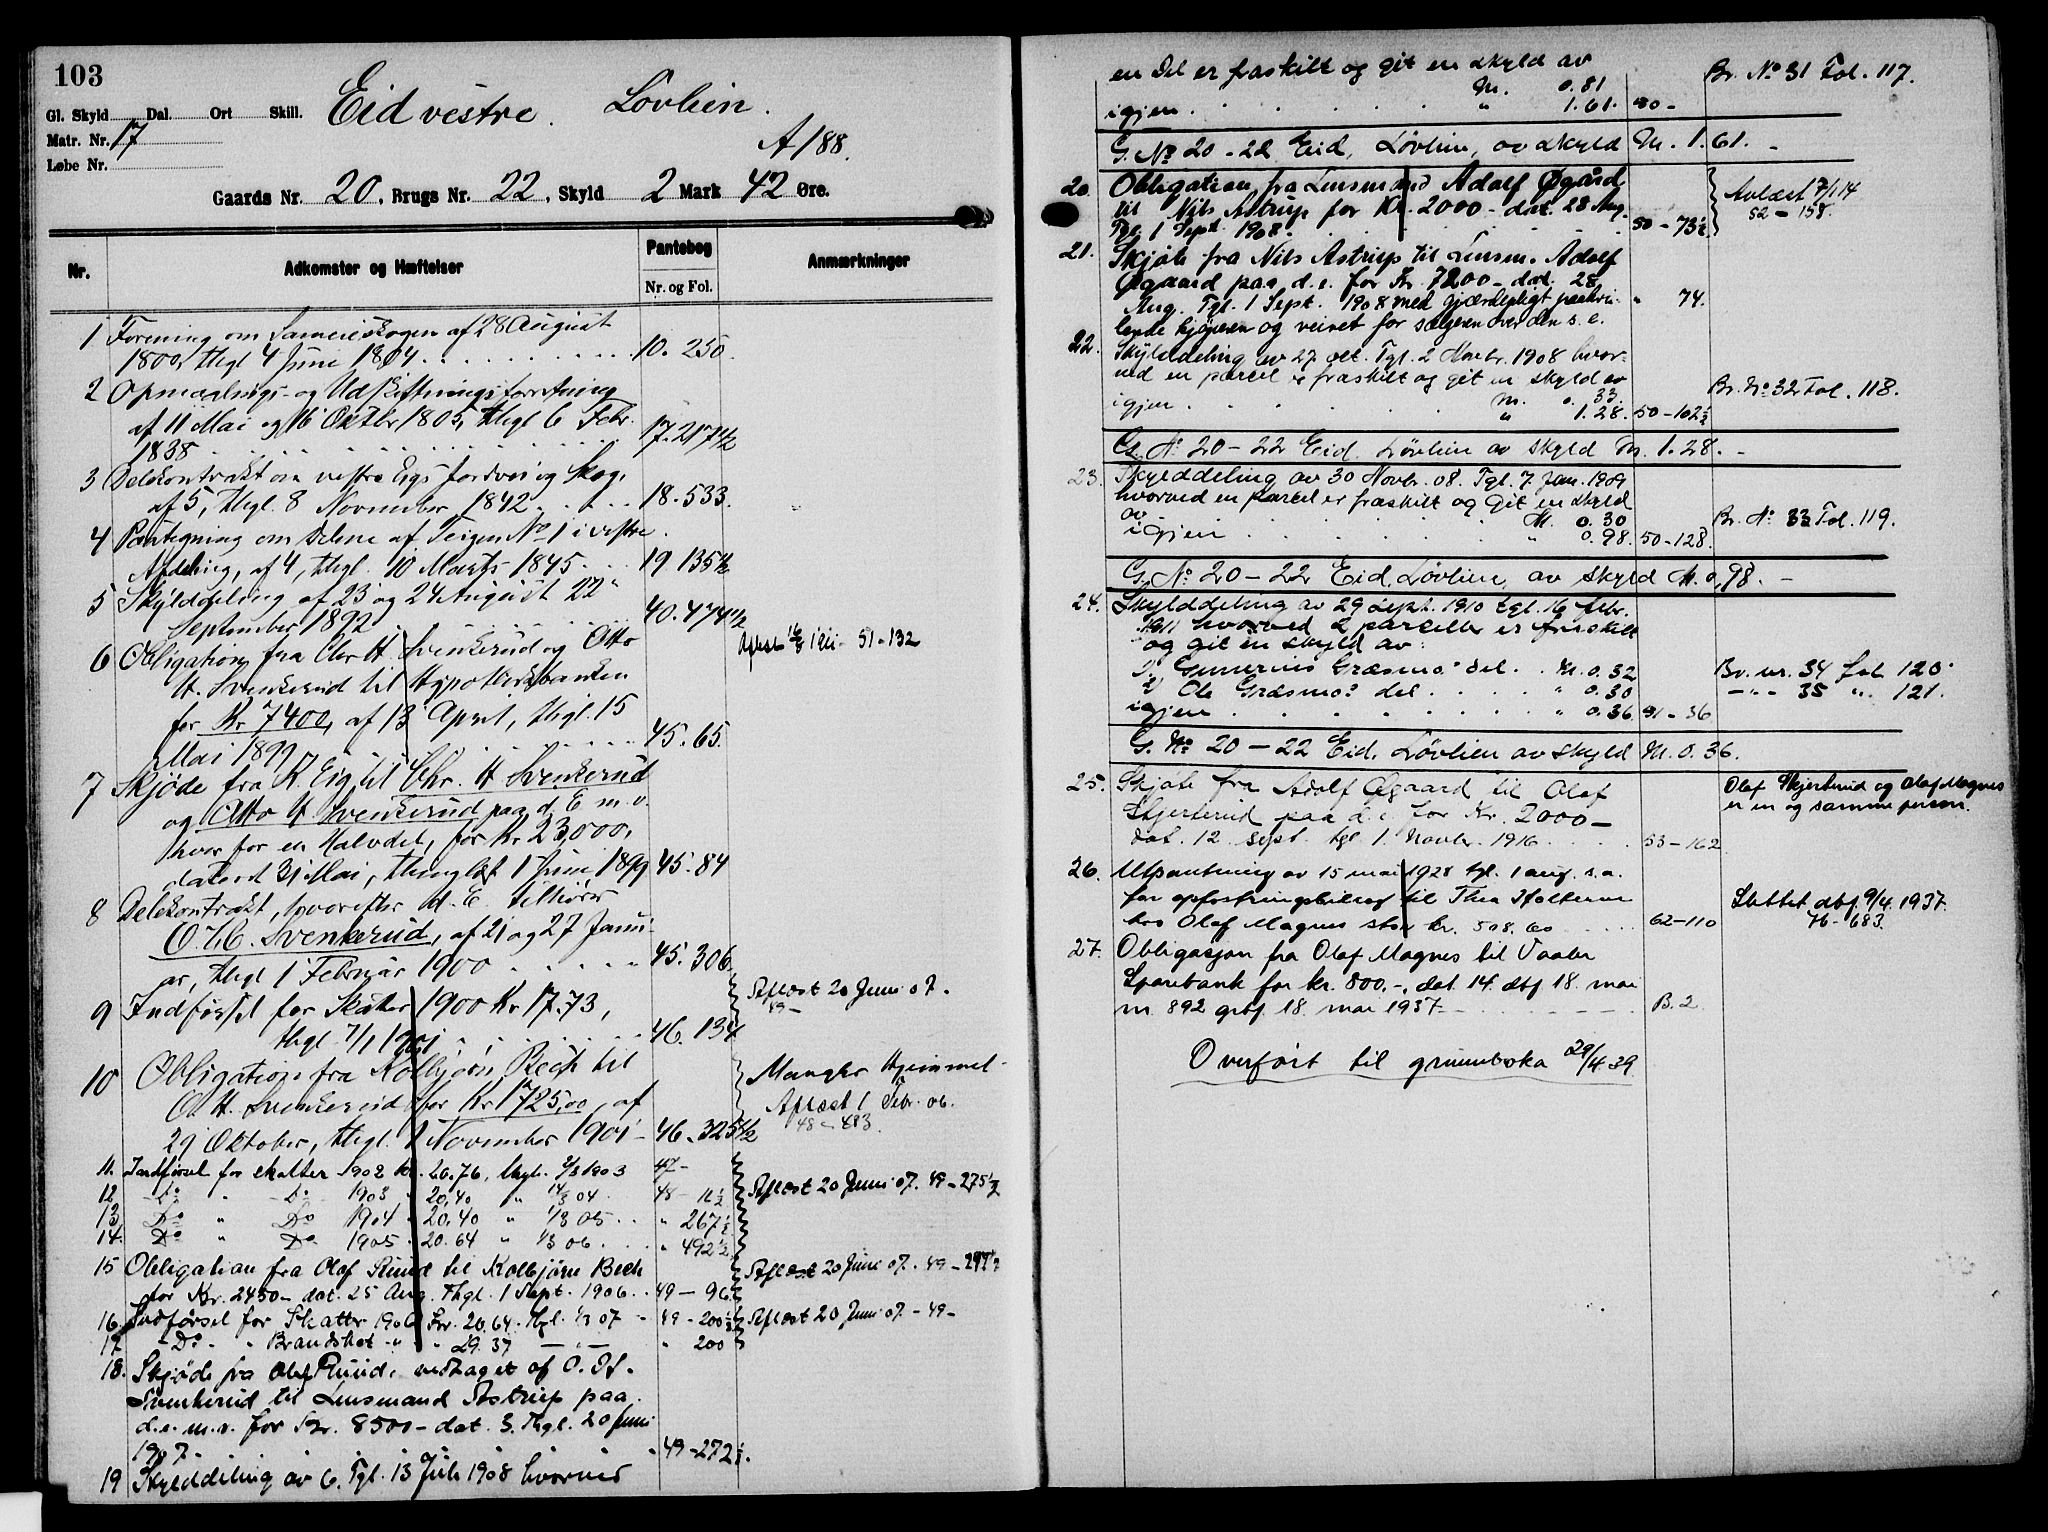 103
Gl. Skyld Dal. Ort Skill.
Eid vestre. Lövlien.
Matr. Nr. 17
A 188.
Løbe Nr.
Gaards Nr. 20, Brugs Nr. 22, Skyld 2 Mark 42 Øre.
Nr. Adkomster og Hæftelser Pantebog Nr. og Fol. Anmærkninger
1 Forening om Sameieskogen af 28 August
1800, thgl 4 Juni 1804 10. 250.
2 Opmaalings- og Udskiftningsforretning
af 11 Mai og 16 Oktbr 1805, thgl 6 Febr.
1838 17. 217 1/2
3 Delekontrakt om vestre Eigs Jordvei og Skog,
af 5, thgl. 8 November 1842 18. 533.
4 Paategning om Delene af Teigen No 1 i vestre
Afdeling, af 4, thgl. 10 Marts 1845 19 135 1/2
5 Skylddeling af 23 og 24 August 22
September 1892 40. 474 1/2
6 Obligation fra Chr H Svenkerud og Otto
H. Svenkerud til Hypothekbanken
for Kr 7400, af 13 April, thgl. 15
Mai 1899 45. 65.
51-132
7 Skjöde fra K. Eig til Chr. H Svenkerud
og Otto H Svenkerud paa d. E m. v.
hver for en Halvdel, for Kr 23,000,
dateret 31 Mai, thinglæst 1 Juni 1899 45. 84
8 Delekontrakt, hvorefter d. E. tilhörer
O. H. Svenkerud, af 21 og 27 Janu-
ar, thgl 1 Februar 1900 45. 306
9 Indførsel for Skatter 1900 Kr 17.73,
thgl 7/1 1901 46. 134
Aflæst 20 Juni 07.
49-
10 Obligation fra Kolbjørn Bech til
O. H. Svenkerud for Kr 1725,00, af
29 Oktober, thgl. 1 November 1901 46. 325 1/2
Mangler Hjemmel-
Aflæst 1 Febr. 06.
48-483.
11. Indførsel for skatter 1902 Kr. 26.76, thgl. 2/3 1903 47-
12 Do " Do 1903 " 20,40 " 14/3 04. 48- 12 1/2
Aflæst 20 Juni 07. 49-275 1/2
13 Do " Do 1904 " 20.40 " 1/3 05 " 267 1/2
14. Do " Do 1905 " 20.64 " 1/3 06 " 492 1/2
15 Obligation fra Olaf Ruud til Kolbjørn Bech
for Kr. 2450- dat. 25 Aug. Thgl. 1 Sept. 1906 49-96
Aflæst 20 Juni 07. 49-
16. Indførsel for Skatter 1906 Kr. 20.64. Thgl. 1/3 07 49-200 1/2
Aflæst 20 Juni 07.-49-
17 Do. " Brandskat " " 29.37 " 200
18. Skjøde fra Olaf Ruud, vedtaget af O. H.
Svenkerud til Lensmand Astrup paa
d.e. m.v. for Kr. 8500- dat. 3. Thgl. 20 Juni
1907. 49-272 1/2.
19 Skylddeling av 6. Tgl. 13 Juli 1908 hvorved
en Del er fraskilt og git en skyld av
M. 0.81
igjen " 1.61. 50-
Br. No 31 Fol. 117.
G. No 20-22 Eid, Løvlien, av skyld M. 1.61.-
20. Obligation fra Lensmand Adolf Øgård
til Nils Astrup for Kr. 2000- dat. 28 Aug.
Tgl. 1 Sept. 1908. 50-73 1/2
Avlæst 7/1 14
52-158.
21. Skjøte fra Nils Astrup til Lensm. Adolf
Øgaard paa d.e. for Kr. 7200- dat. 28
Aug. Tgl. 1 Sept. 1908 med gjærdepligt paahvi-
lende kjøperen og veiret for sælgeren over den s. e. " 74.
22. Skylddeling av 27 oct. Tgl. 2 Novbr. 1908 hvor-
ved en parcel er fraskilt og git en skyld av
M. 0.33.
igjen " 1.28. 50-102 1/2
Br. No 32 Fol. 118.
G. No 20-22 Eid. Løvlien av skyld M. 1.28.-
23. Skylddeling av 30 Novbr. 08. Tgl. 7 Jan. 1909
hvorved en parcel er fraskilt og git en skyld
av M. 0.30
igjen " 0.98. 50-128.
Br. No 33 Fol. 119.
G. No 20-22 Eid, Løvlien, av skyld M. 0,98.-
24. Skylddeling av 29 sept. 1910 tgl. 16 febr.
1911 hvorved 2 parceller er fraskilt
og git en skyld av:
1) Gunerius Græsmos del. M. 0.32
2) Ole Græsmos del " 0.30
igjen " 0.36 51-36
Br. nr. 34 fol 120
-"- 35 " 121.
G. No 20-22 Eid. Løvlien av skyld M. 0.36.
25. Skjøte fra Adolf Øgaard til Olaf
Skjerterud paa d.e for Kr. 2000-
dat. 12 sept. tgl. 1. Novbr. 1916 53-162
Olaf Skjerterud og Olaf Magnes
er en og samme person.
26. Utpantning av 15 mai 1928 tgl. 1 aug. s.a.
for opfostringsbidrag til Thea Holterud
hos Olaf Magnes stor kr. 508.60 62-110
Slettet dbf. 9/4. 1937.
76-683.
27. Obligasjon fra Olaf Magnes til Vaaler
Sparebank for kr. 800.-, dat. 14. dbf 18. mai
nr. 892 grbf 18. mai 1937 B. 2
Overført til grunnboka 29/4 39